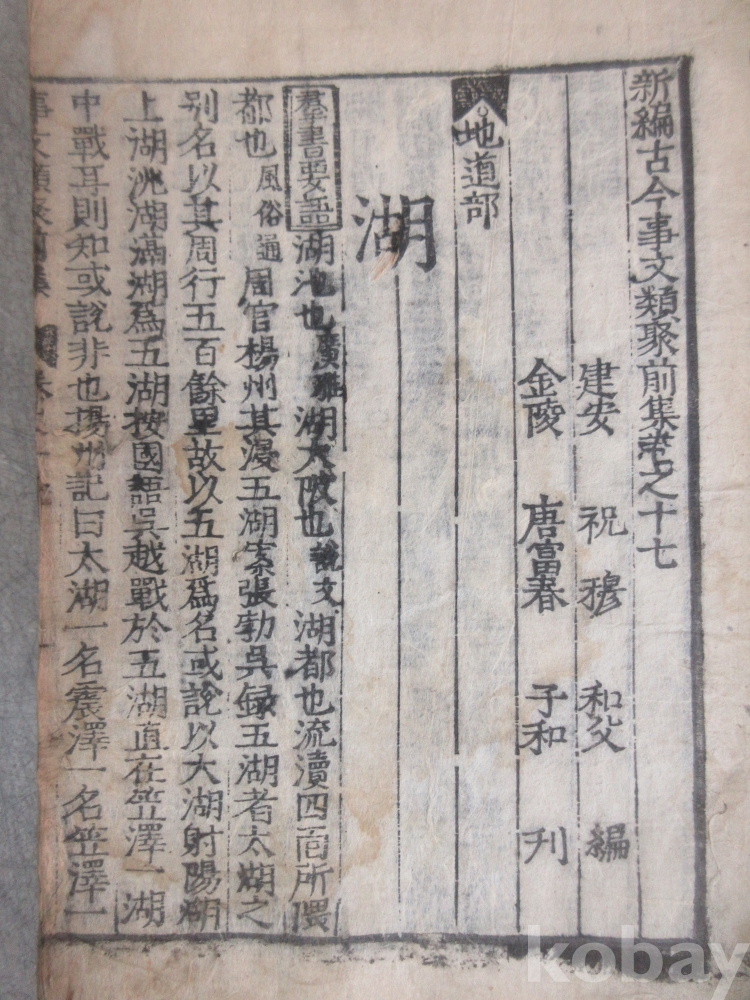 新編古今事文類聚前集卷之十七
建安 祝穆 和父 編
金陵 唐富春 子和 刊
地道部
湖
羣書要語 湖池也廣雅湖大陂也說文湖都也流瀆四面所隈
都也風俗通周官楊州其浸五湖案張勃吳録五湖者太湖之
别名以其周行五百餘里故以五湖爲名或說以大湖射陽湖
上湖洮湖滆湖爲五湖按國語吳越戰於五湖直在笠澤一湖
中戰耳則知或說非也揚州記曰太湖一名震澤一名笠澤一
事文類聚前集
kobay